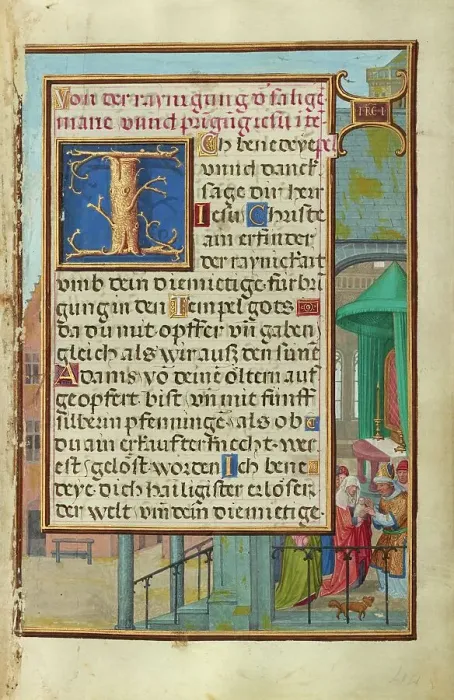 Von der raynigung d' saligē
marie vnnd pringūg iesu i tē
pel
Ich benedeye
vnnd danck
sage dir herr
Iesu Christe
ain erfinder
der raynickait
vmb dein diemietige furbrī
gung in den Tempel gots
da du mit opffer vn̄ gaben
gleich als wir ausz den sune
Adams vō deinē öltern auf
geopfert bist vn̄ mit funff
silberin pfenningē als ob
du ain erkaufter knecht wer
est gelöst worden Ich bene
deye dich hailigister erlöser
der welt vm̄ dein diemietige